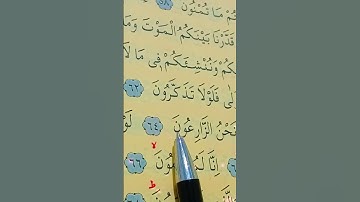 ـمْ مَا تُمْنُونَ ﴿٥٨﴾
قَدَّرْنَا بَيْنَكُمُ الْمَوْتَ وَمَا
ـكُمْ وَنُنْشِئَكُمْ فِى مَا لَا
ـلٰى فَلَوْلَا تَذَكَّرُونَ ﴿٦٢﴾
نَحْنُ الزَّارِعُونَ ﴿٦٤﴾ لَوْ
لا
﴿٦٦﴾ اِنَّا لَمُـ ـونَ
ط